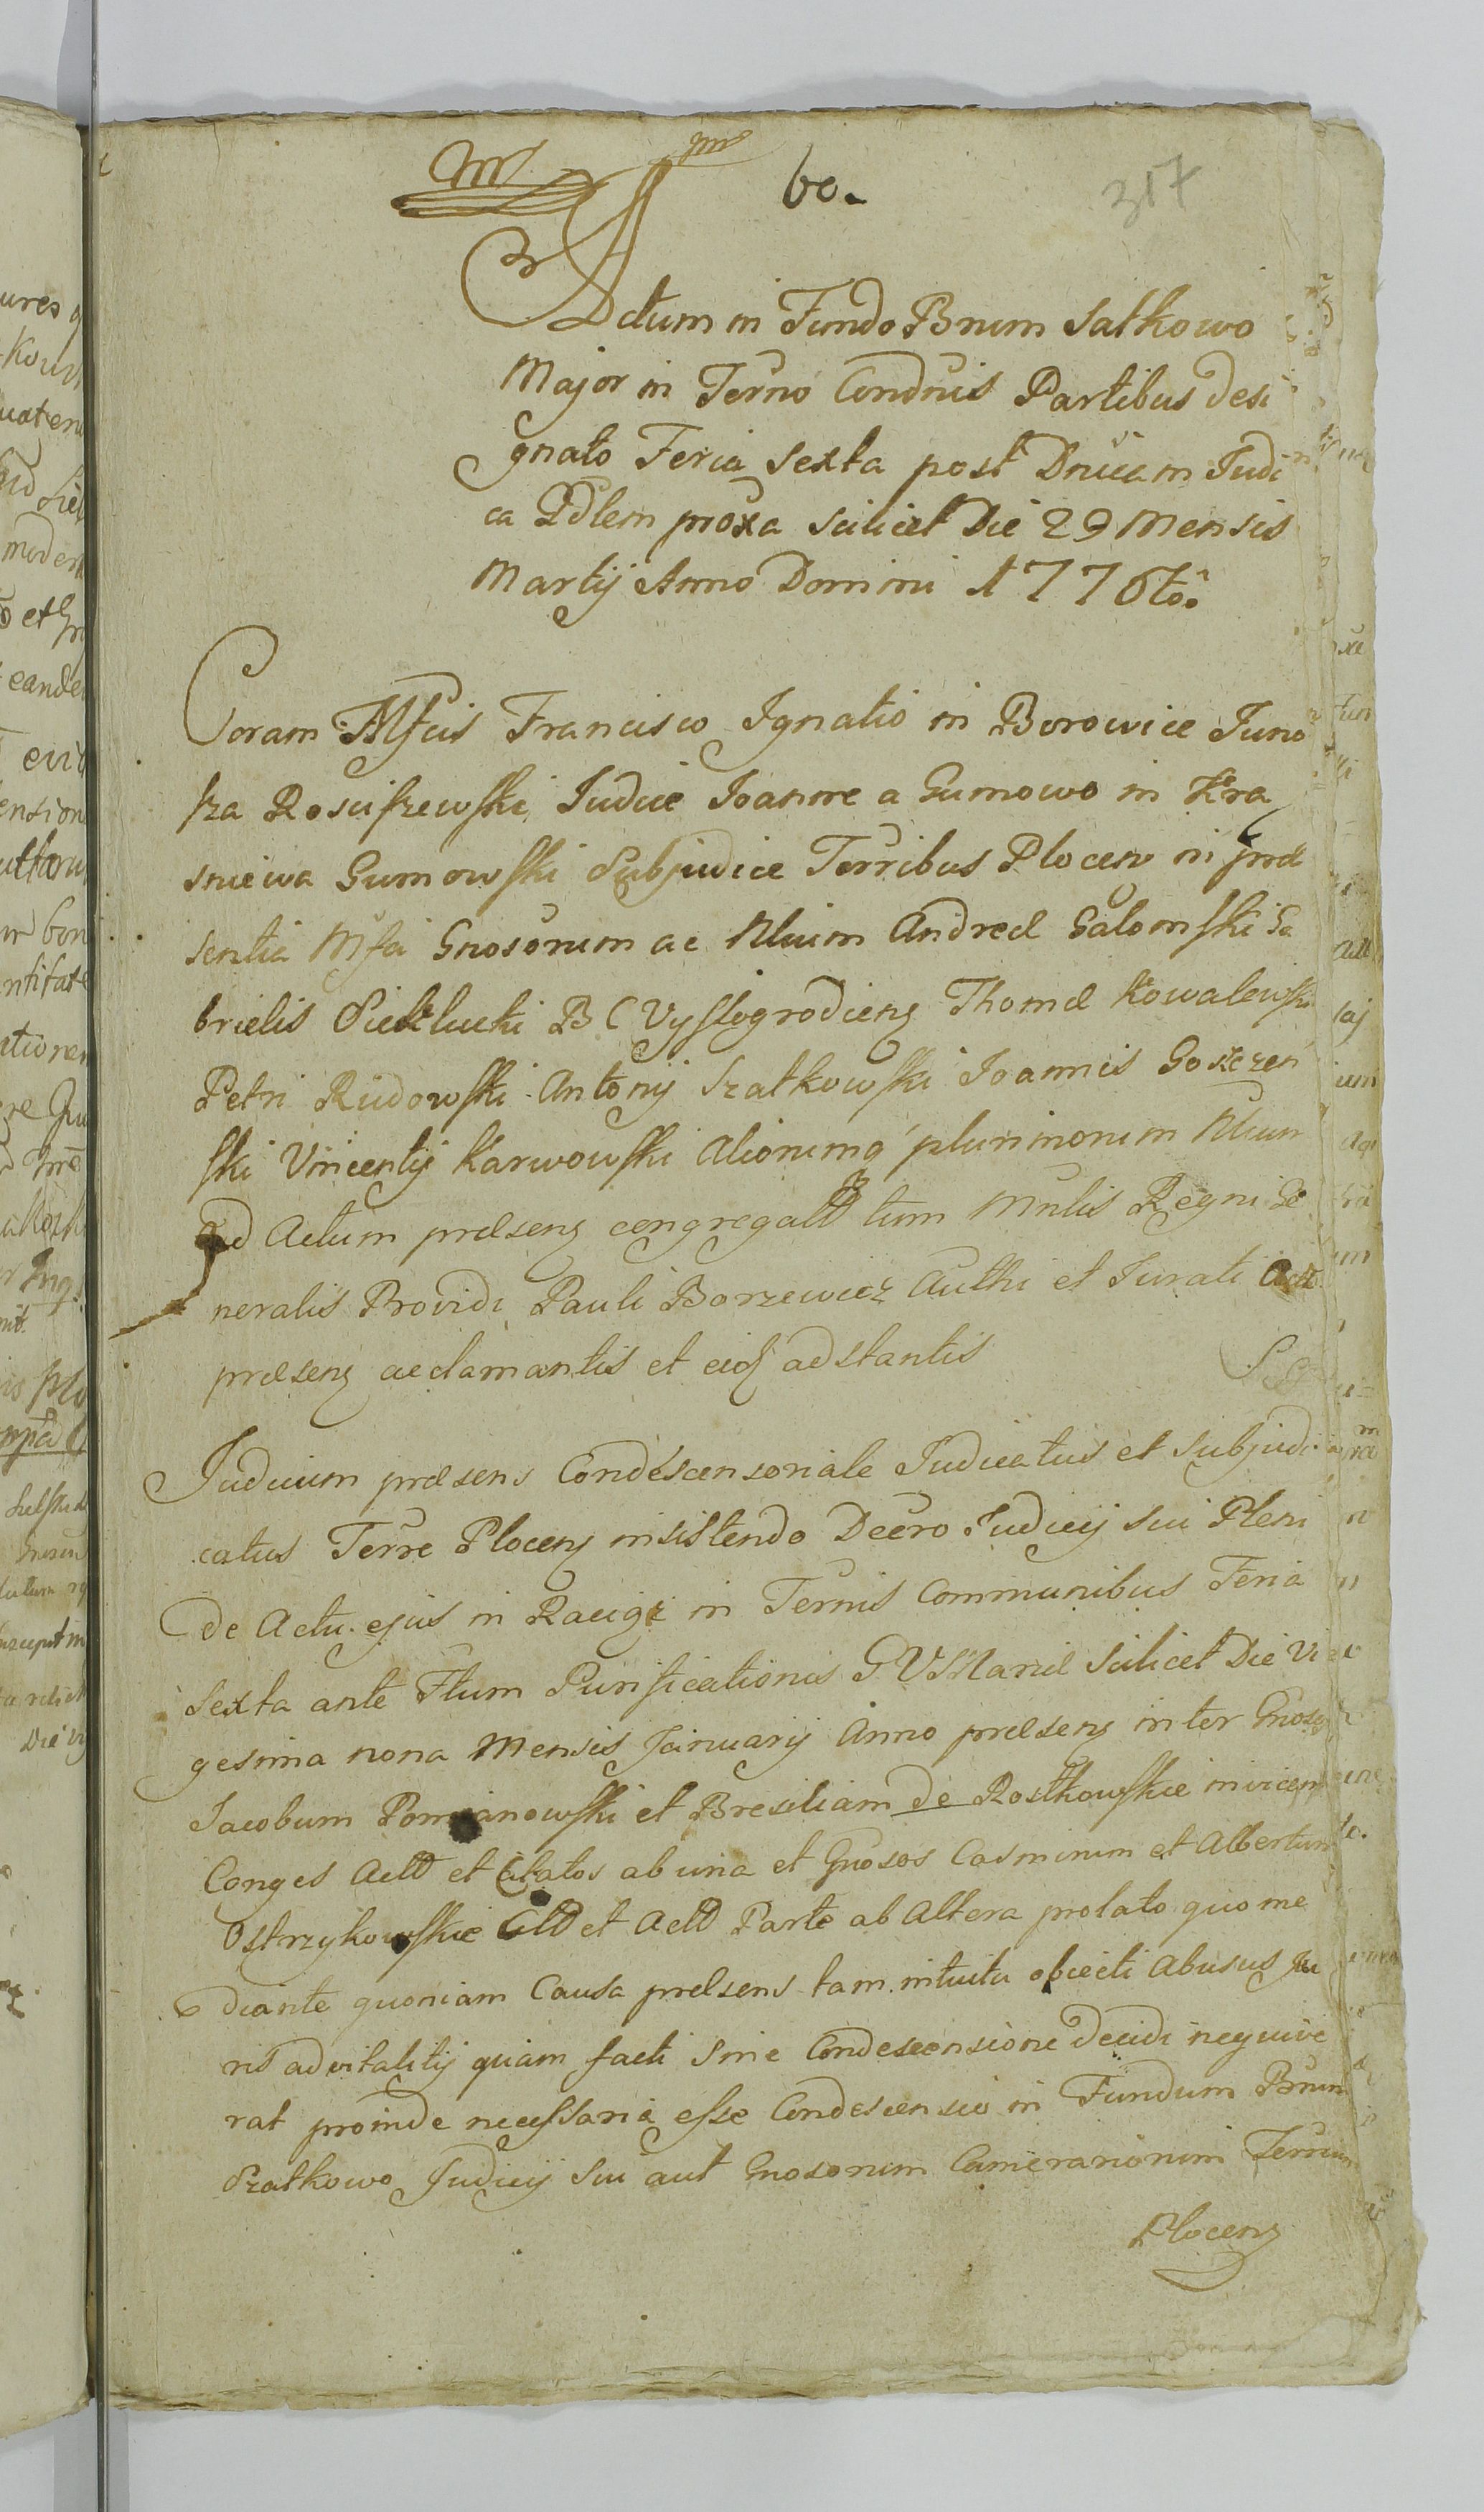 60.
317
Actum in Fundo Bnrum Satkowo
Major in Terno Condnis Partibus desi
gnato Feria Sexta post Dnicam Judi
ca Qdlem proxa scilicet Die 29 Mensis
Martij Anno Domini 1776to.
Coram Mfcis Francisco Ignatio in Borowice Juno
sza Rosciszewski Judice Joanne a Gumowo in Kra
sniewa Gumowski Subjudice Terribus Plocen in præ
sentia Mfci Gnosorum ac Nlium Andreæ Galomski Ga
brielis Piekłucki B C Vyszogrodiens Thomæ Kowalewski
Petri Rudowski Antonij Szatkowski Joannis Goszczen
ski Vincentij Karwowski Aliorumq plurimorum Nlium
ad Actum præsens congregatt tum Mnlis Regni Ge
neralis Providi Pauli Borzewicz Authi et Jurati Act
præsens acclamantis et eid adstantis
Judicium præsens Condescensoriale Judicatus et Subjudi
catus Terræ Plocens insistendo Decro Judicij sui Pleni
de Actu ejus in Raciąż in Ternis Communibus Feria
Sexta ante Ftum Purificationis G V Mariæ scilicet Die Vi
gesima nona Mensis Januarij Anno præsens inter Gnosos
Jacobum Pomianowski et Bresciliam de Rostkowskie invicem
Conges Actt et Citatos ab una et Gnosos Casmirum et Albertum
Ostrzykowskie Citt et Actt Parte ab Altera prolato quo me
diante quoniam Causa præsens tam intuitu objecti Abusus Ju
ris advitalitij quam facti sine Condescensione decidi nequive
rat proinde necessaria esse Condescensio in Fundum Bnrum
Szatkowo Judicij sui aut Gnosorum Camerariorum Terrium
Plocens